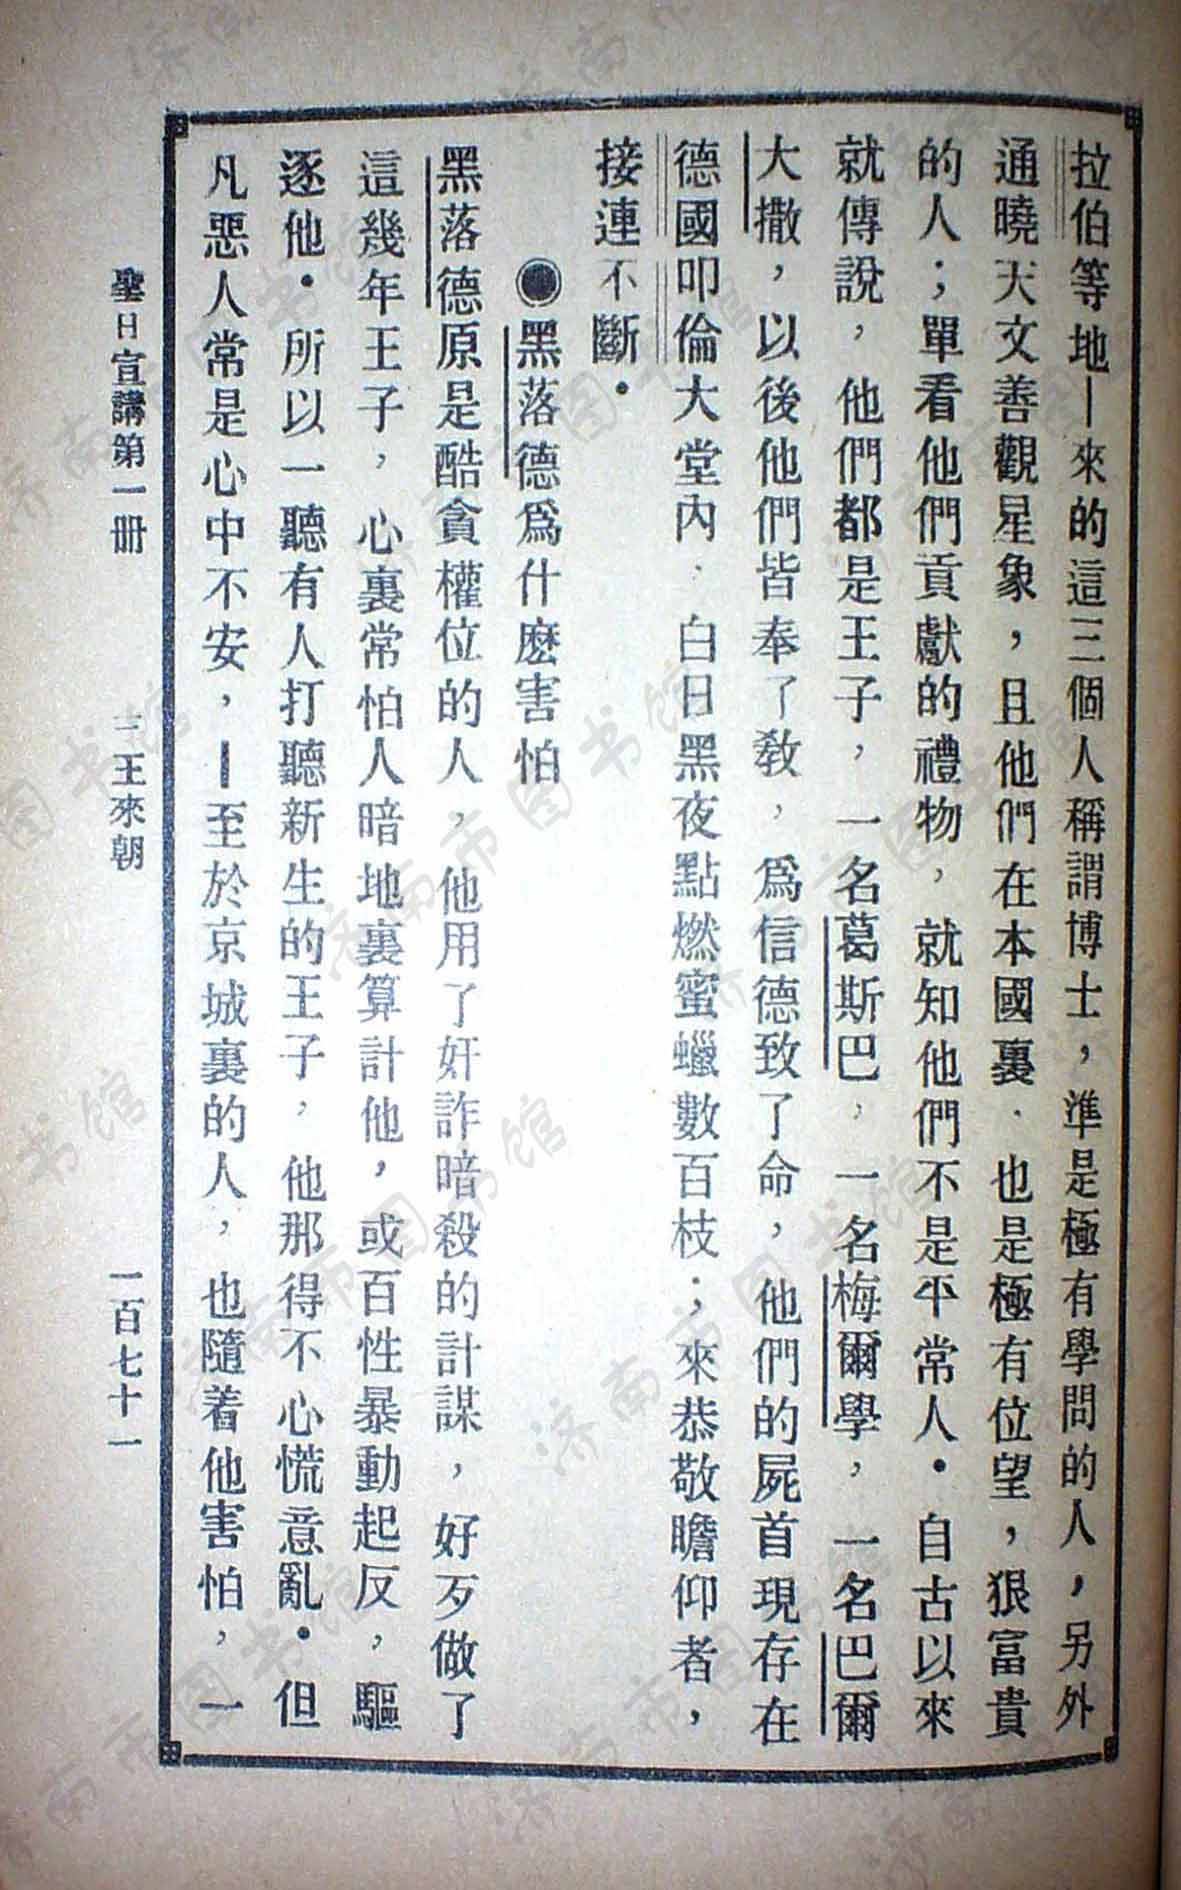 拉伯等地—來的這三個人稱謂博士，準是極有學問的人，另外
通曉天文善觀星象，且他們在本國裏．也是極有位望，狠富貴
的人；單看他們貢獻的禮物，就知他們不是平常人．自古以來
就傳說，他們都是王子，一名葛斯巴，一名梅爾學，一名巴爾
大撒，以後他們皆奉了敎，爲信德致了命，他們的屍首現存在
德國叩倫大堂內．白日黑夜點燃蜜蠟數百枝；來恭敬瞻仰者，
接連不斷．
●黑落德爲什麽害怕
黑落德原是酷貪權位的人，他用了奸詐暗殺的計謀，好歹做了
這幾年王子，心裏常怕人暗地裏算計他，或百性暴動起反，驅
逐他．所以一聽有人打聽新生的王子，他那得不心慌意亂．但
凡惡人常是心中不安，—至於京城裏的人，也隨着他害怕，一
聖日宣講第一册　三王來朝　一百七十一
济南市图书馆